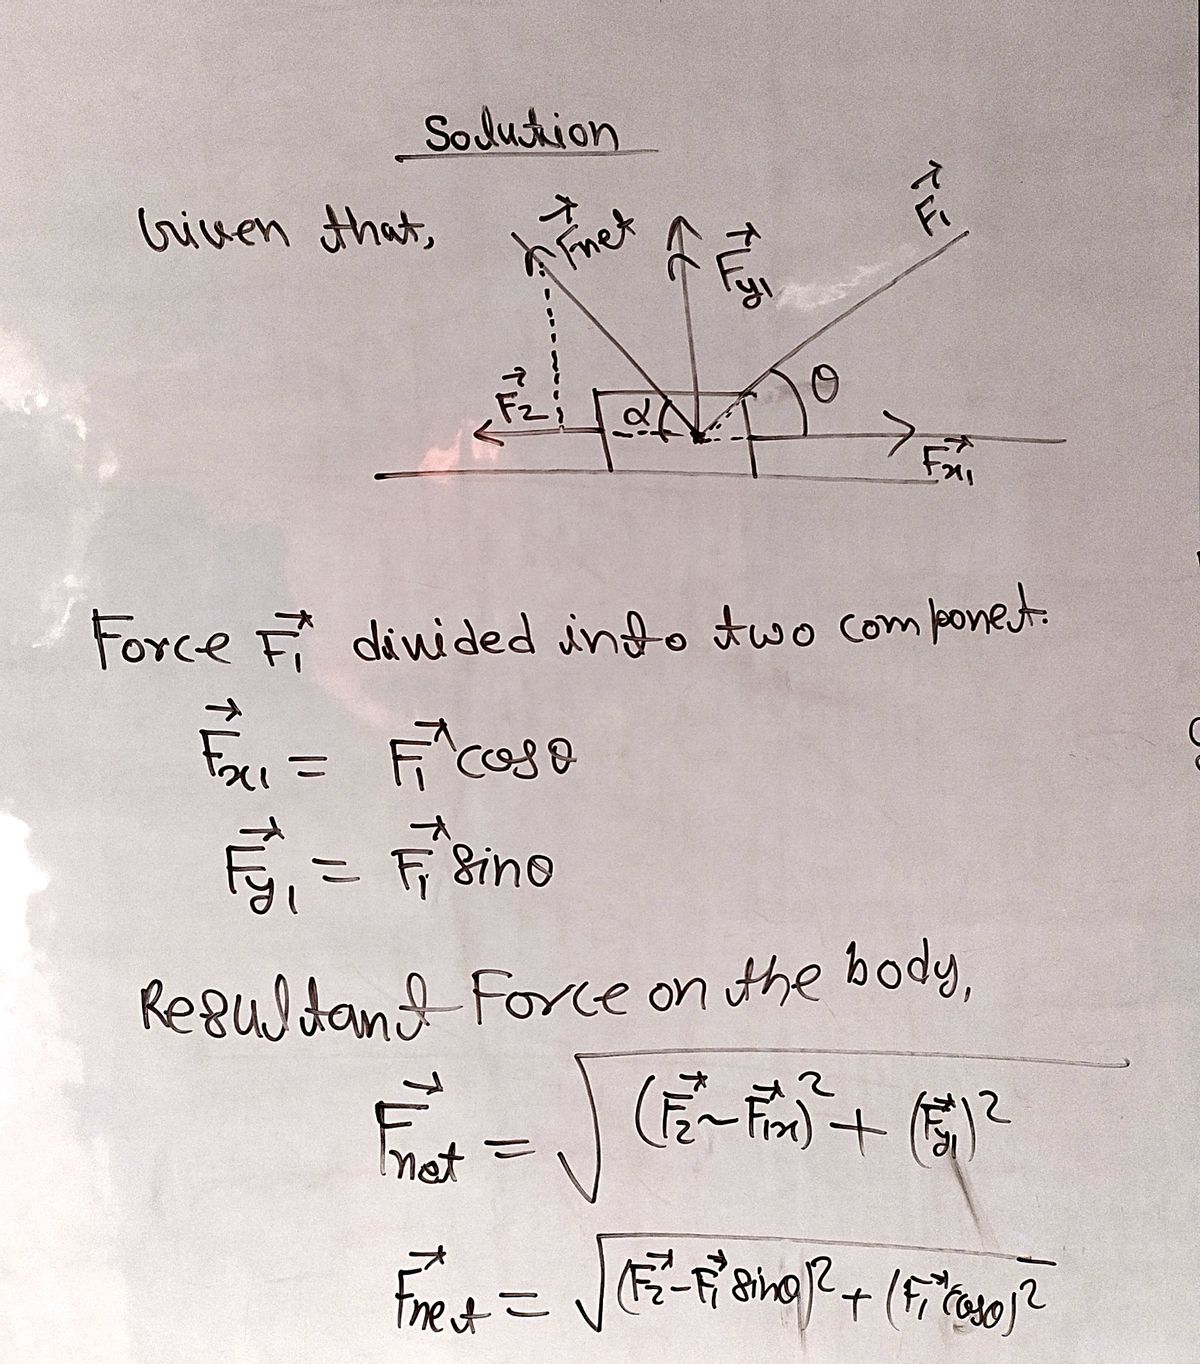 Solution
Given that,
F⃗net
F⃗y1
F⃗1
F⃗2
α
θ
F⃗x1
Force F⃗1 divided into two componet.
F⃗x1 = F⃗1 cosθ
F⃗y1 = F⃗1 sinθ
Resultant Force on the body,
F⃗net = √((F⃗2 ~ F⃗1x)² + (F⃗y1)²)
F⃗net = √((F⃗2 - F⃗1 sinθ)² + (F⃗1 cosθ)²)